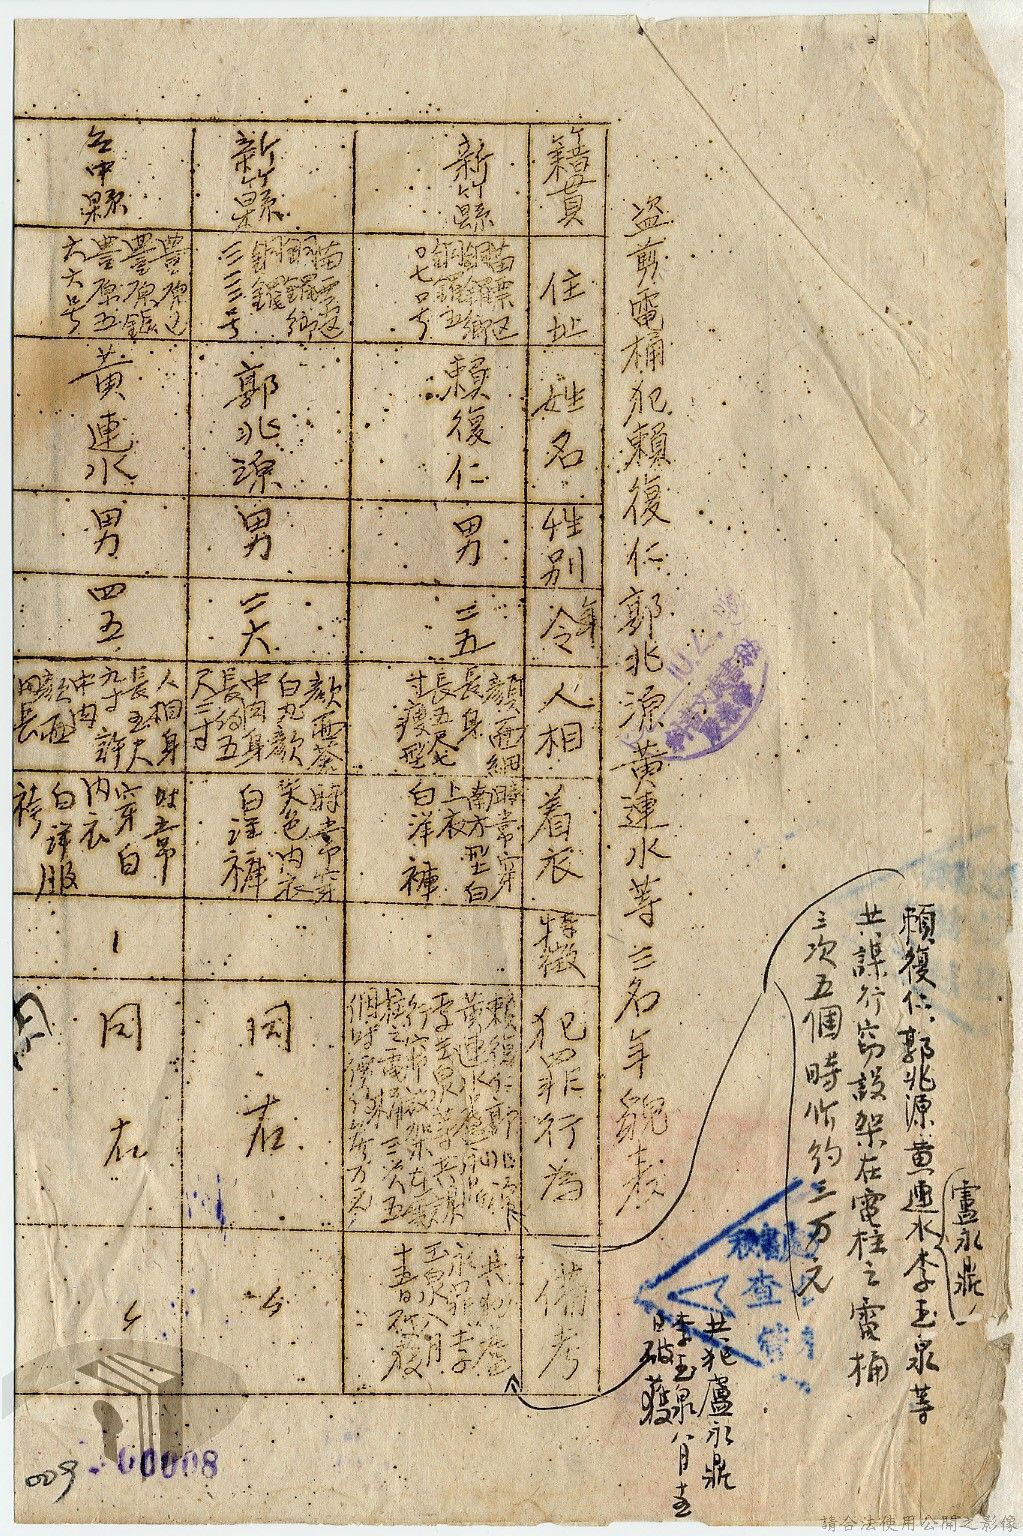 賴復仁、郭兆源黄連水李玉泉等
盧永鼎
共謀行窃設架在電柱之電桶
三次五個時价約三万元
共犯盧永鼎
李玉泉八月
日破獲
盗剪電桶犯賴復仁郭兆源黄連水等三名年貌表
籍貫
住址
姓名
性别
年令
人相
着衣
特徵
犯罪行為
備考
新竹縣
苗栗区
銅鑼鄉
銅鑼五
〇七号
賴復仁
男
三五
顔面細
長身
長五尺七
寸瘦型
時常穿
南方型白
上衣
白洋褲
賴復仁郭兆源
黄連水盧永鼎
李玉泉等共謀
行窃設架在電
柱之電桶三次五
個時價約叁万元
共犯盧
永鼎李
玉泉八月
破獲
新竹縣
苗栗区
銅鑼鄉
銅鑼
三三三号
郭兆源
男
二六
顔面茶
白丸顔
中肉身
長約五
尺三寸
時常穿
茶色内衣
白洋褲
同右
〃
台中縣
豊原区
豊原鎮
豊原五
六六号
黄連水
男
四五
人相身
長五尺
九寸許
中肉
顔面
円長
時常
穿白
内衣
白洋服
袴
同右
〃
00008
009
請合法使用公開之影像